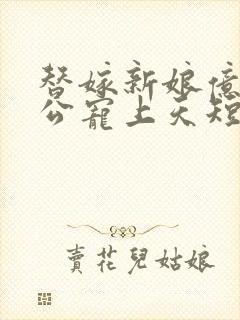 替嫁新娘億
公寵上天短
賣花兒姑娘